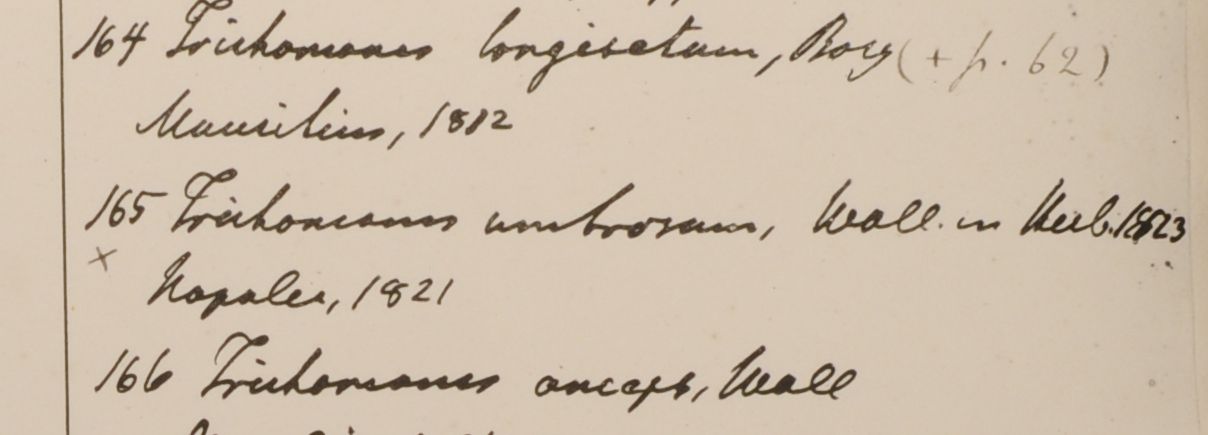 164 Trichomanes longisetum, Bory (+ p. 62)
Mauritius, 1812
165 Trichomanes umbrosum, Wall. in Herb. 1823
x
Napalia, 1821
166 Trichomanes anceps, Wall